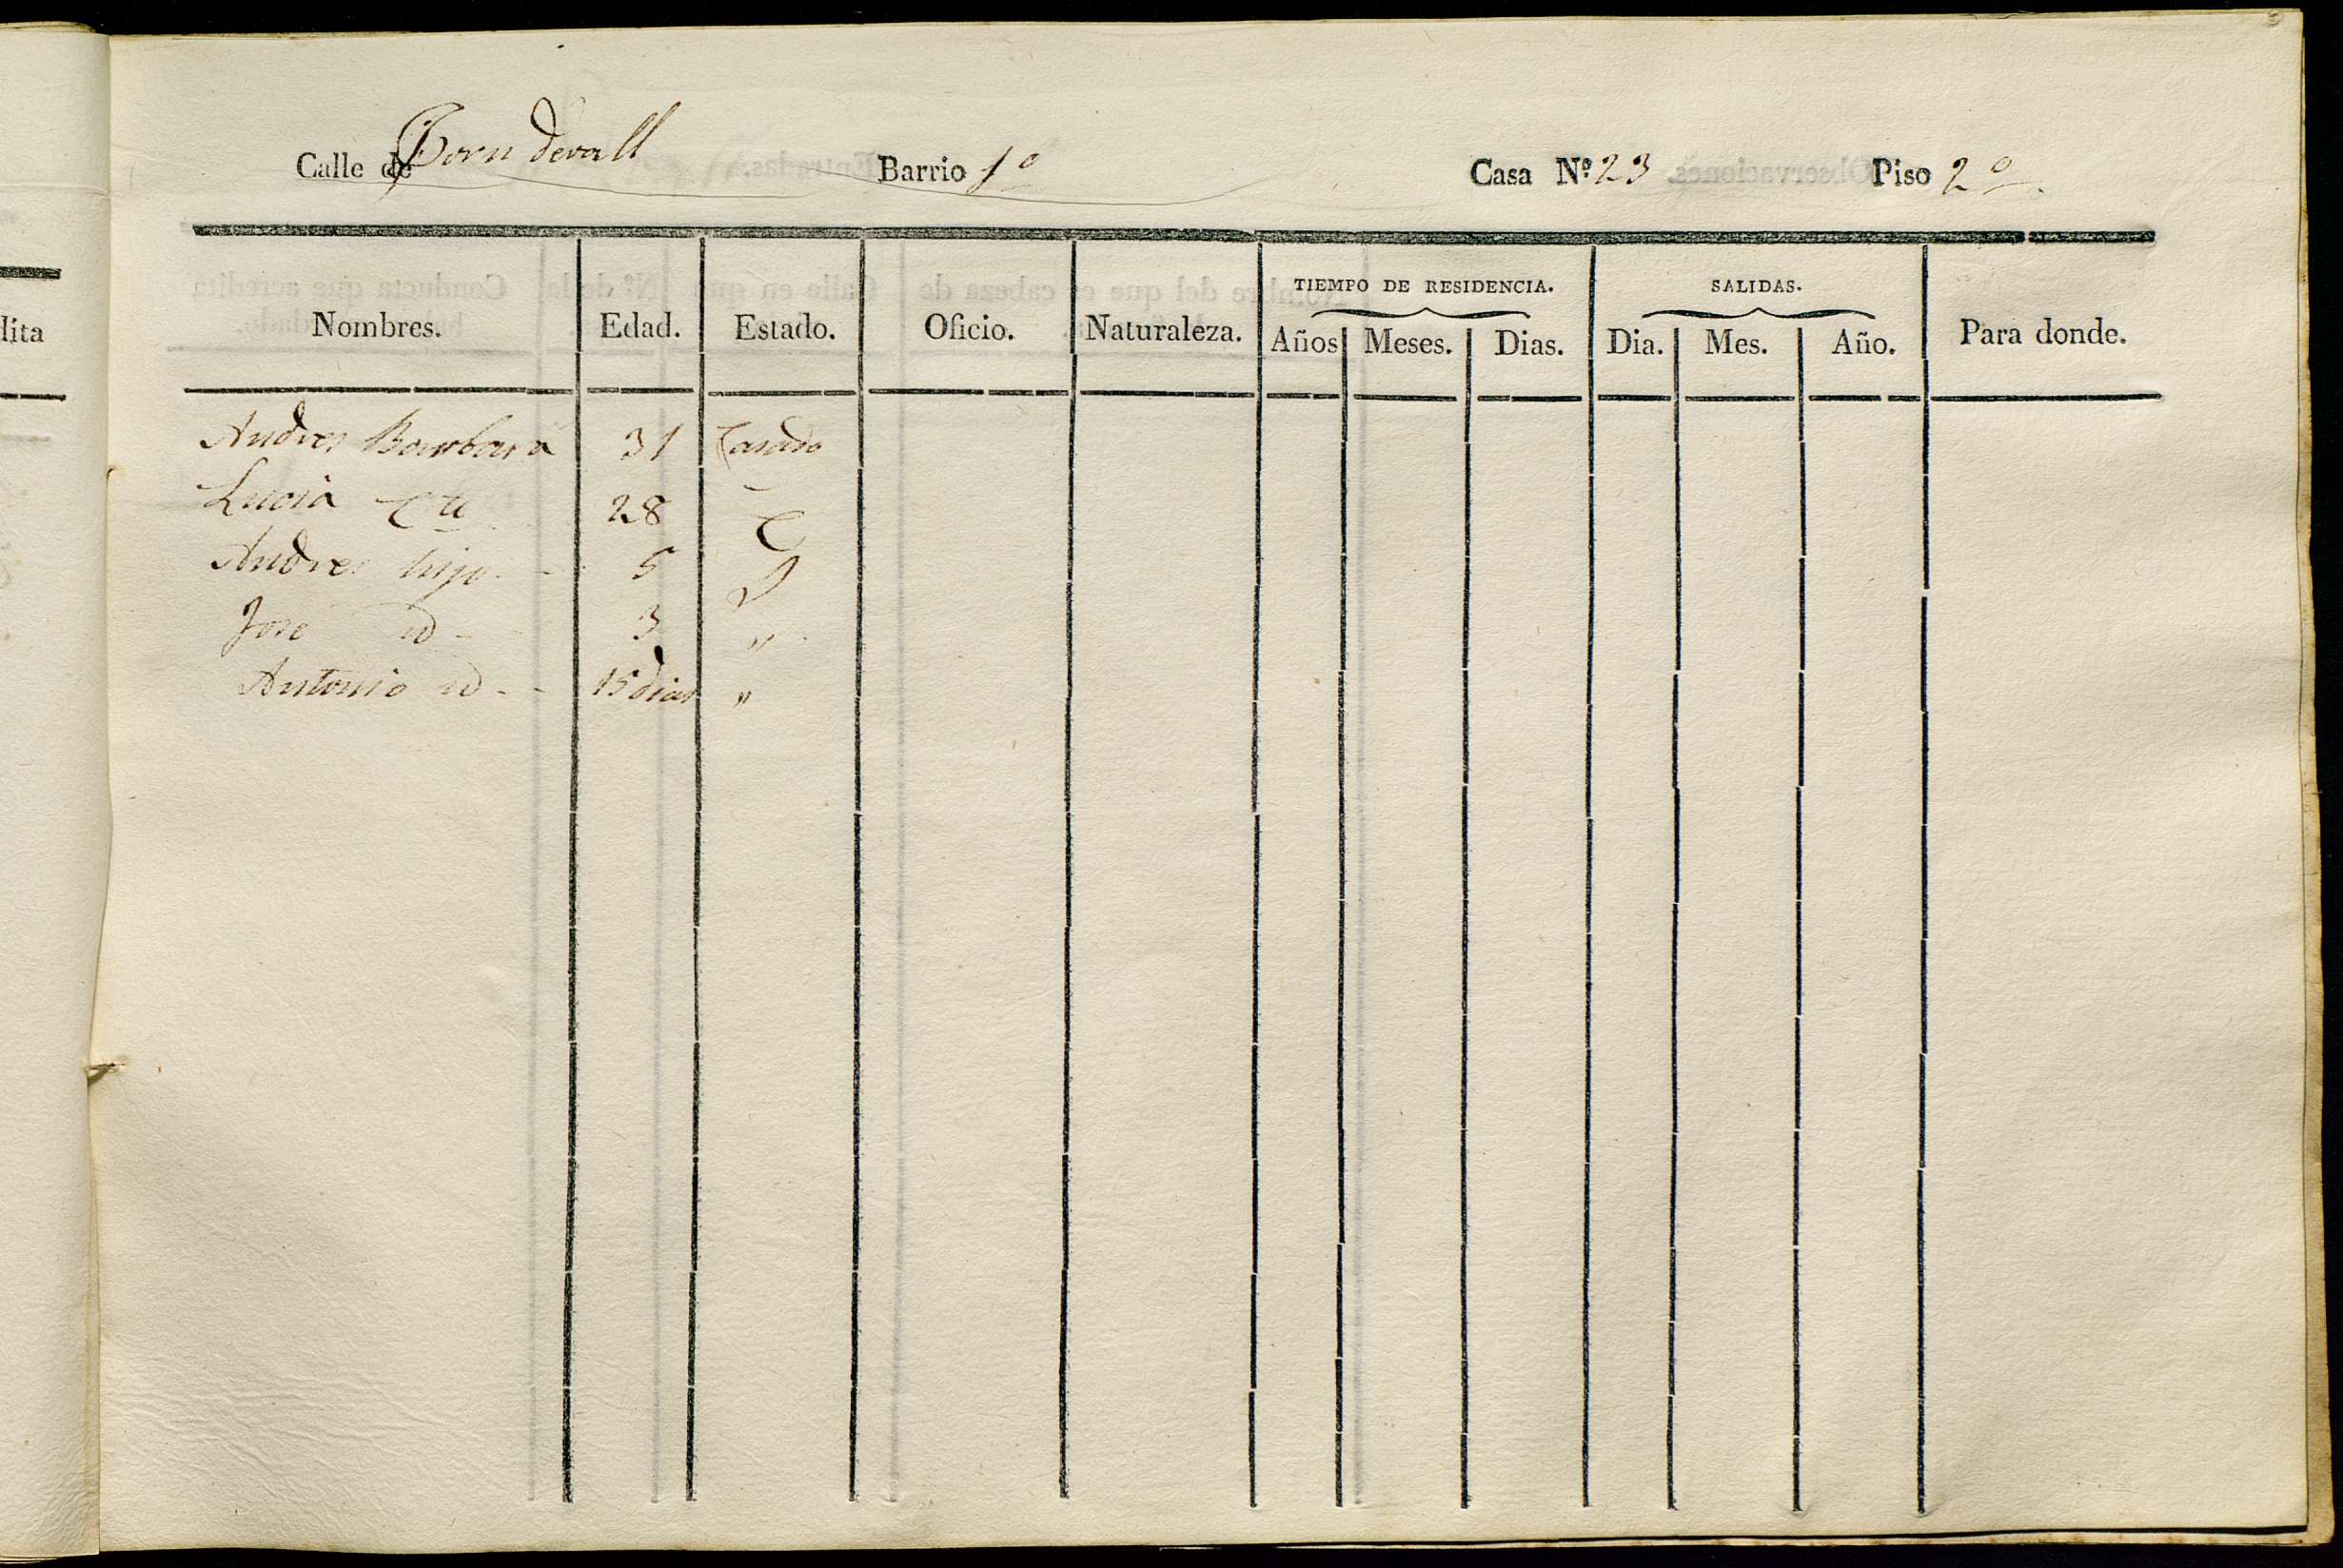 lita
Calle de Born devall Barrio 1º Casa Nº 23 Piso 2º
Nombres. Edad. Estado. Oficio. Naturaleza. TIEMPO DE RESIDENCIA. Años Meses. Dias. SALIDAS. Dia. Mes. Año. Para donde.
Andres Barbará 31 Casado
Lucia 28 C
Andres hijo 5 S
José id 3 "
Antonio id 15 dias "